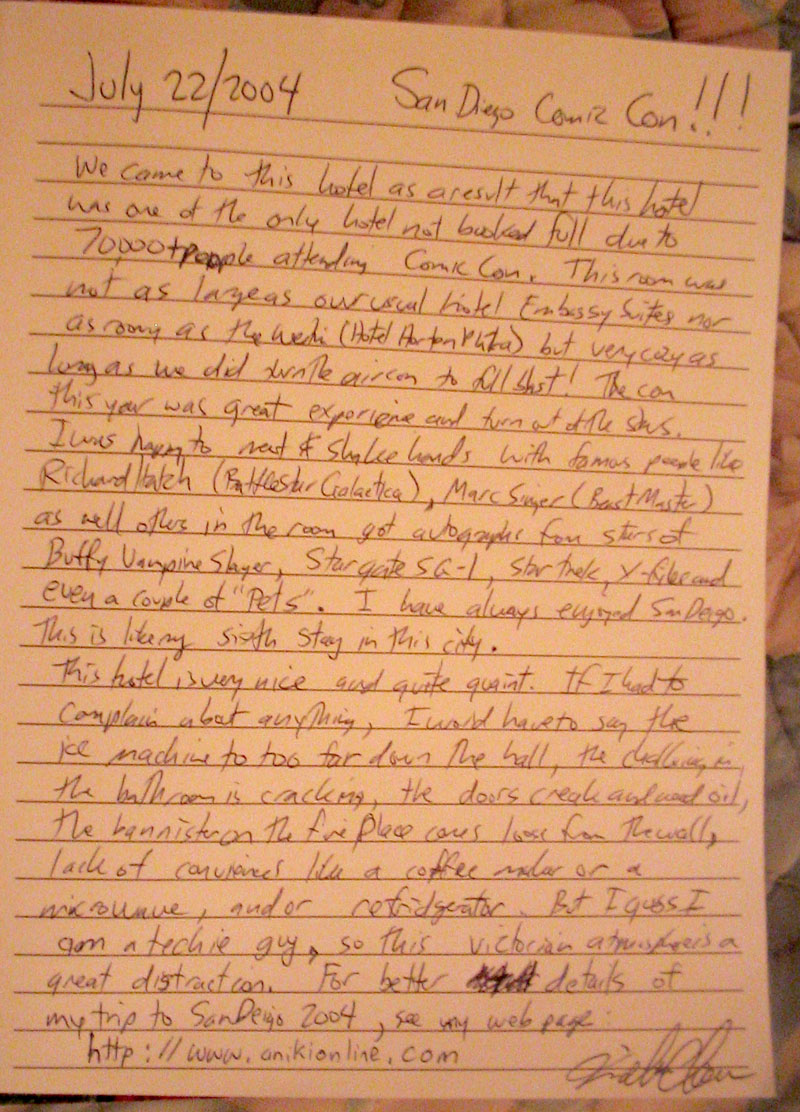 July 22/2004 San Diego Comic Con!!!
We came to this hotel as a result that this hotel
was one of the only hotel not booked full due to
70,000+ people attending Comic Con. This room was
not as large as our usual hotel Embassy Suites nor
as roomy as the (Hotel Horton Plaza) but very cozy as
long as we did turn the aircon to full blast! The con
this year was great experience and turn out of the stars.
I was happy to meet & shake hands with famous people like
Richard Hatch (Battlestar Galactica), Marc Singer (Beast Master)
as well others in the room got autographs from stars of
Buffy Vampire Slayer, Stargate SG-1, Star Trek, X-Files and
even a couple of "Pets". I have always enjoyed San Deigo.
This is like my sixth stay in this city.
This hotel is very nice and quite quaint. If I had to
complain about anything, I would have to say the
ice machine to too far down the hall, the chalking in
the bathroom is cracking, the doors creak and need oil,
the bannister on the fire place comes loose from the wall,
lack of conviences like a coffee maker or a
microwave, and/or refridgerator. But I guess I
am a techie guy, so this victorian atmosphere is a
great distraction. For better details of
my trip to San Deigo 2004, see my web page:
http://www.anikionline.com